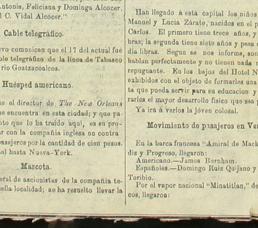 Antonis, Feliciana y Dominga Alcocer.
C. Vidal Alcocer."
Cable telegráfico.
comunicen que el 17 del actual fué
cable telegráfico de la línea de Tabasco
Goatzacoalcos.
Huésped americano.
el director de The New Orleans
encuentra en esta ciudad; y que
que lo ha traído aquí, es
con la compañía inglesa
pasajeros por la cantidad de cien pesos.
hasta Nueva-York.
Mascota.
de accionistas de la compañía
localidad; se ha resuelto llevar la
Han llegado á esta capital los niños
Manuel y Lucía Zárate, nacidos en el
Carlos. El primero tiene trece años y
bras; la segunda tiene siete años y pesa
dia libras. Segun se nos informa, son
hablan perfectamente y no tienen nada
repugnante. En los bajos del Hotel N
exhibidos con el objeto de formarles una
ta que pueda servir para su educacion y
varlos el mayor desarrollo físico que sea
Ya irá á verlos la jóven colosal.
Movimiento de pasajeros en Ver
En la barca francesa "Amiral de Mack
diz y Progreso, llegaron:
Americano.—James Bernham.
Españoles.—Domingo Ruiz Quijano y
Toribio.
Por el vapor nacional "Minatitlan," de
cos, llegaron: